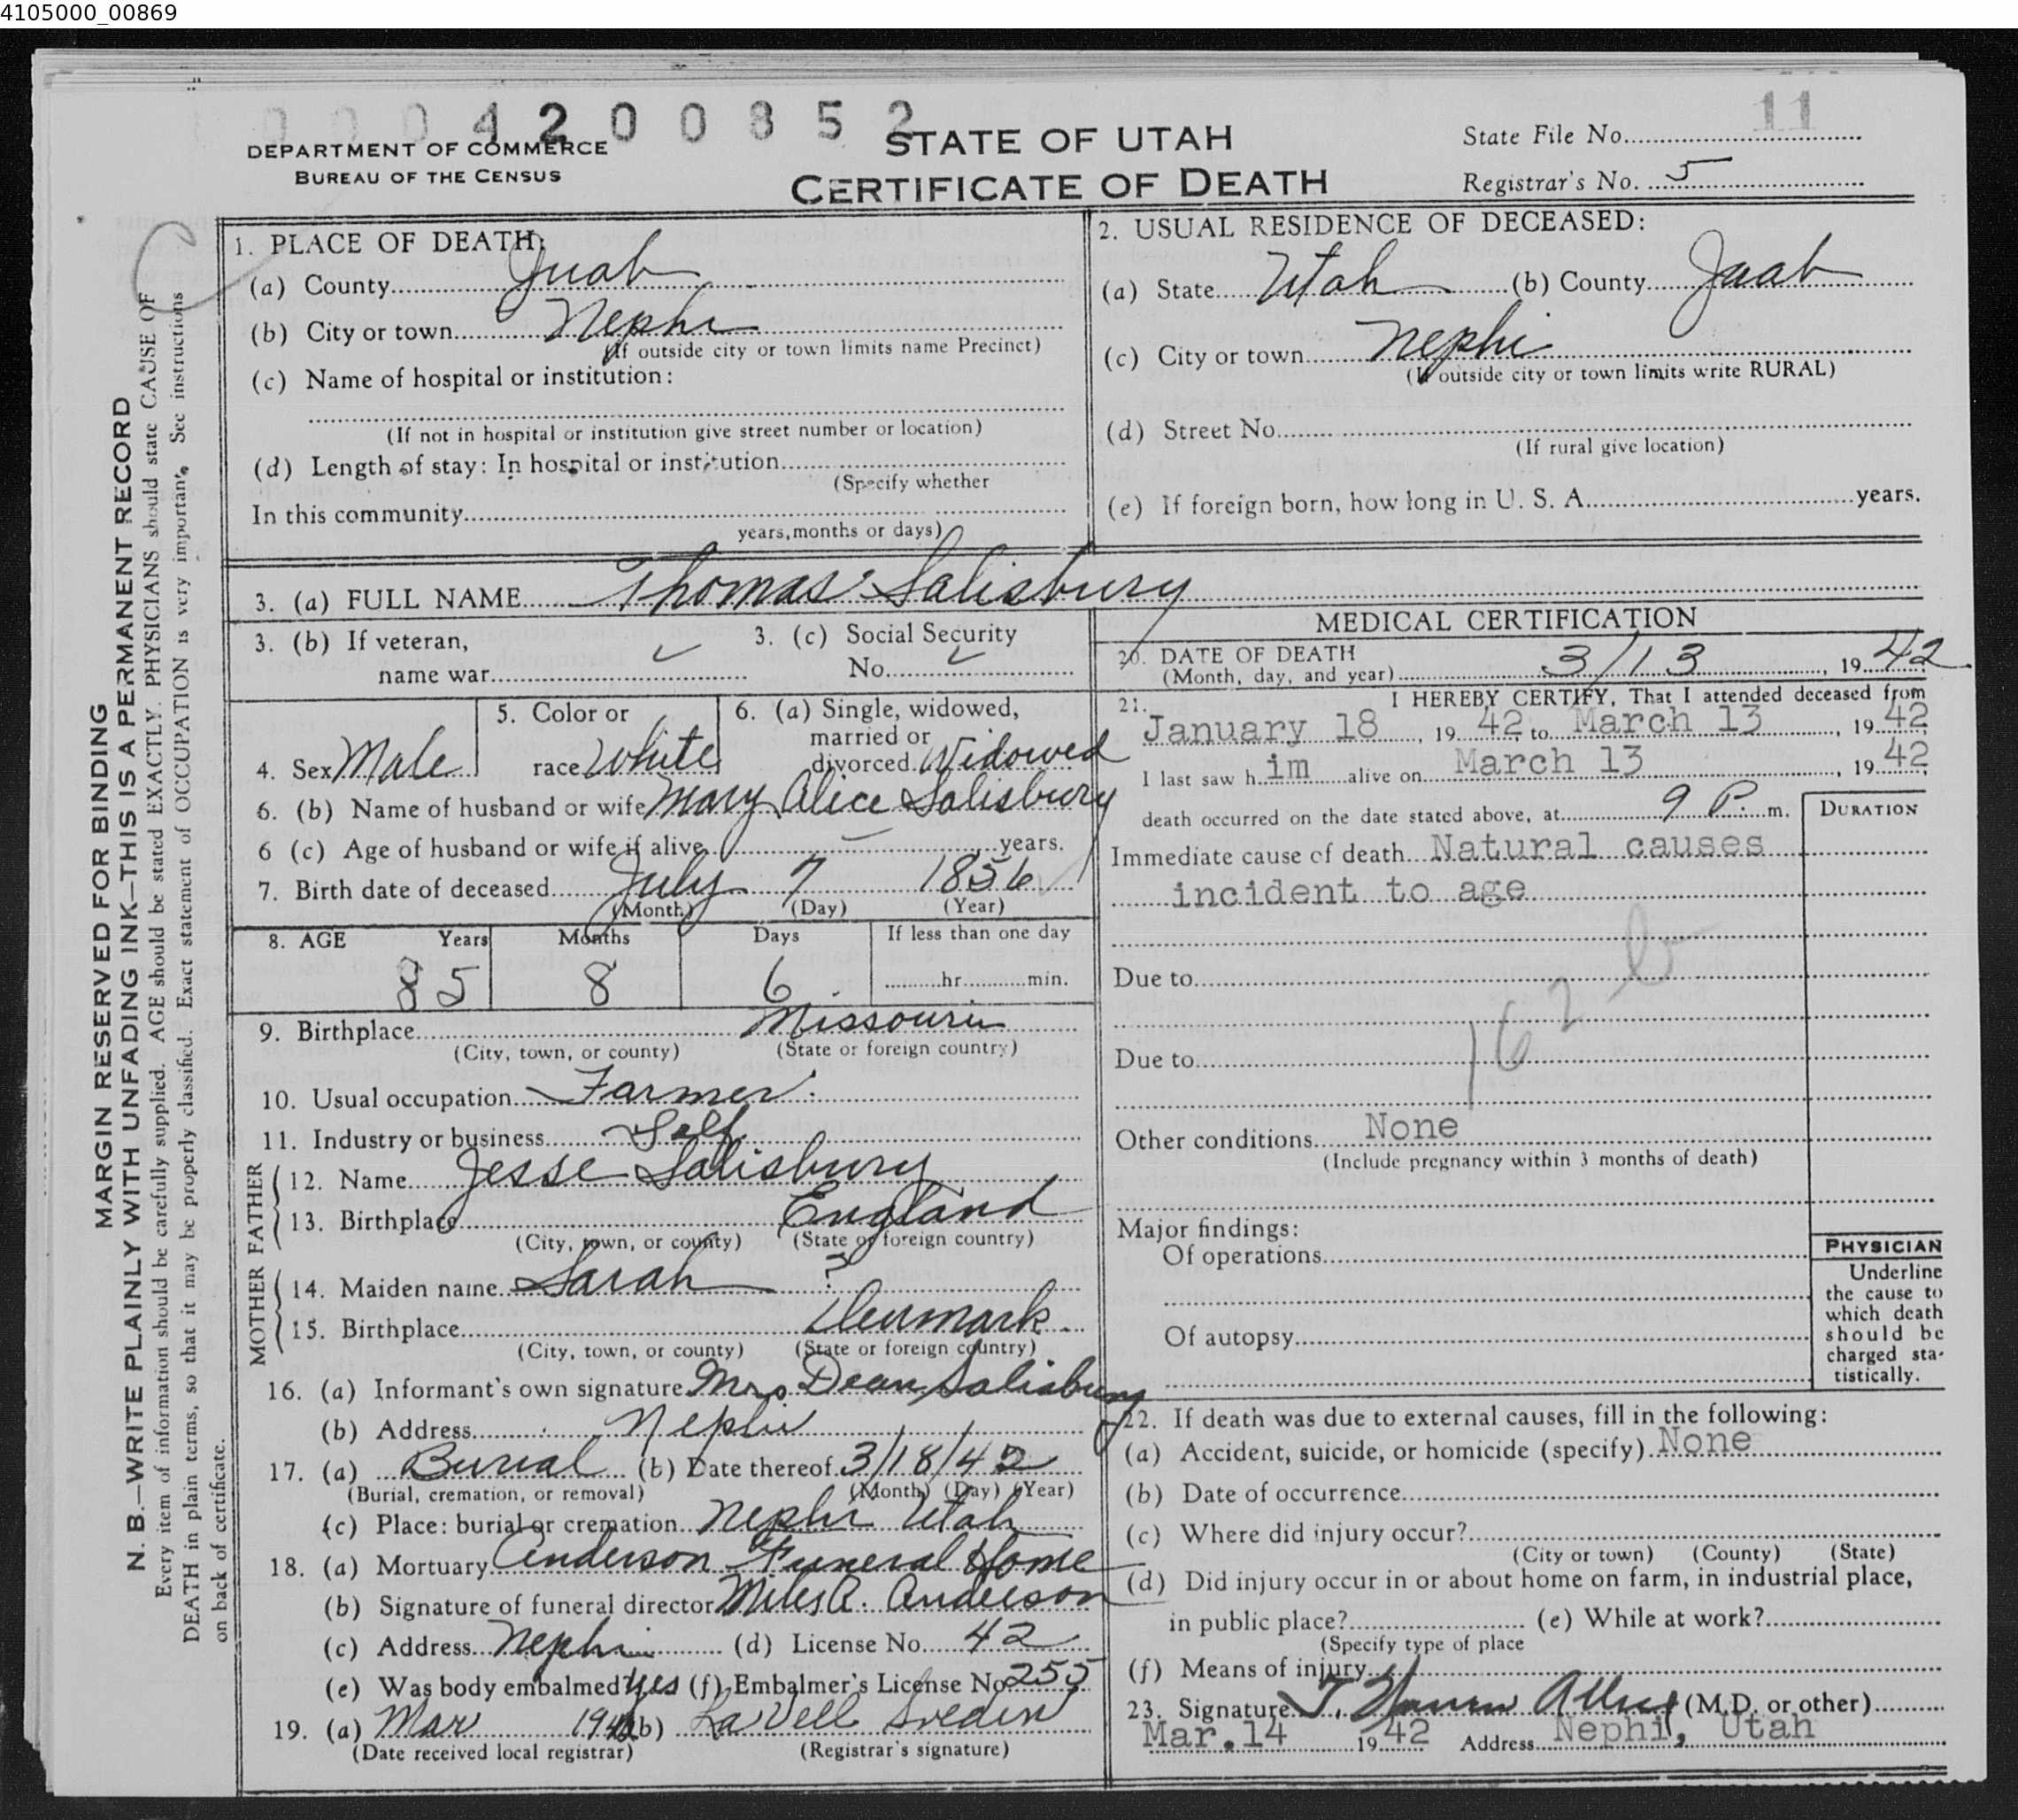 4105000_00869
4200852
DEPARTMENT OF COMMERCE
BUREAU OF THE CENSUS
STATE OF UTAH
CERTIFICATE OF DEATH
State File No. 11
Registrar's No. 5
MARGIN RESERVED FOR BINDING
N. B.—WRITE PLAINLY WITH UNFADING INK—THIS IS A PERMANENT RECORD
Every item of information should be carefully supplied. AGE should be stated EXACTLY. PHYSICIANS should state CAUSE OF
DEATH in plain terms, so that it may be properly classified. Exact statement of OCCUPATION is very important. See instructions
on back of certificate.
1. PLACE OF DEATH:
(a) County Juab
(b) City or town Nephi
(If outside city or town limits name Precinct)
(c) Name of hospital or institution:
(If not in hospital or institution give street number or location)
(d) Length of stay: In hospital or institution
(Specify whether
In this community
years, months or days)
2. USUAL RESIDENCE OF DECEASED:
(a) State Utah (b) County Juab
(c) City or town Nephi
(If outside city or town limits write RURAL)
(d) Street No.
(If rural give location)
(e) If foreign born, how long in U. S. A. years.
3. (a) FULL NAME Thomas Salisbury
3. (b) If veteran,
name war
3. (c) Social Security
No.
4. Sex Male
5. Color or
race White
6. (a) Single, widowed,
married or
divorced Widowed
6. (b) Name of husband or wife Mary Alice Salisbury
6 (c) Age of husband or wife if alive — years.
7. Birth date of deceased July 7 1856
(Month) (Day) (Year)
8. AGE Years Months Days If less than one day
85 8 6 hr. min.
9. Birthplace Missouri
(City, town, or county) (State or foreign country)
10. Usual occupation Farmer
11. Industry or business Self
FATHER
12. Name Jesse Salisbury
13. Birthplace England
(City, town, or county) (State or foreign country)
MOTHER
14. Maiden name Sarah ?
15. Birthplace Denmark.
(City, town, or county) (State or foreign country)
16. (a) Informant's own signature Mrs Dean Salisbury
(b) Address Nephi
17. (a) Burial (b) Date thereof 3/18/42
(Burial, cremation, or removal) (Month) (Day) (Year)
(c) Place: burial or cremation Nephi Utah
18. (a) Mortuary Anderson Funeral Home
(b) Signature of funeral director Miles A. Anderson
(c) Address Nephi (d) License No. 42
(e) Was body embalmed Yes (f) Embalmer's License No 255
19. (a) Mar 1942 (b) LaVell Sveden
(Date received local registrar) (Registrar's signature)
MEDICAL CERTIFICATION
20. DATE OF DEATH
(Month, day, and year) 3/13, 1942
21. I HEREBY CERTIFY, That I attended deceased from
January 18, 19 42 to March 13, 19 42
I last saw h im alive on March 13, 19 42
death occurred on the date stated above, at 9 P. m.
DURATION
Immediate cause of death Natural causes
incident to age
Due to
162-b
Due to
Other conditions None
(Include pregnancy within 3 months of death)
Major findings:
Of operations
Of autopsy
PHYSICIAN
Underline
the cause to
which death
should be
charged sta-
tistically.
22. If death was due to external causes, fill in the following:
(a) Accident, suicide, or homicide (specify) None
(b) Date of occurrence
(c) Where did injury occur?
(City or town) (County) (State)
(d) Did injury occur in or about home on farm, in industrial place,
in public place? (e) While at work?
(Specify type of place
(f) Means of injury
23. Signature T. (M.D. or other)
Mar. 14 19 42 Address Nephi, Utah